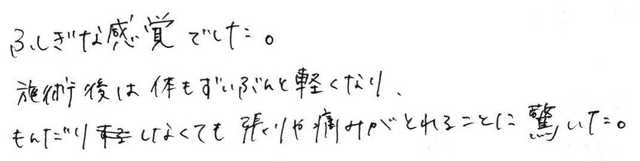 ふしぎな感覚でした。
施術後は体もずいぶんと軽くなり、
もんだりしなくても張りや痛みがとれることに驚いた。